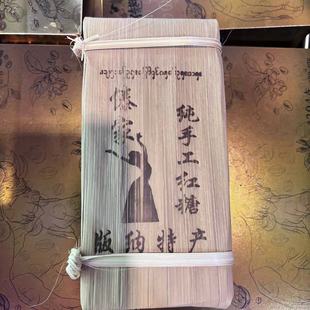 傣家
纯手工红糖
版纳特产